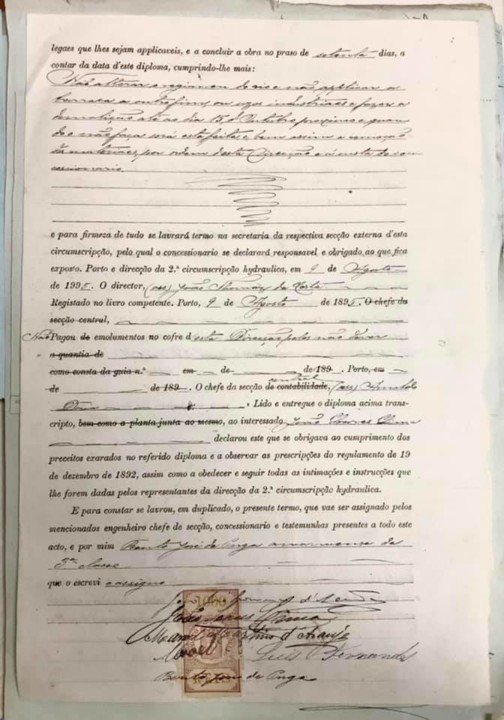 legaes que lhes sejam applicaveis, e a concluir a obra no praso de setenta dias, a
contar da data d'este diploma, cumprindo-lhe mais:
Não alterar o regimen do rio e não applicar a
barraca a outro fim, ou usos industriaes e fazer a
demolição até ao dia 15 d'Outubro proximo e quan-
do o não faça será esta feita e bem assim a remoção
de materiaes, por ordem desta Direcção e á custa do con-
cessionario.
e para firmeza de tudo se lavrará termo na secretaria da respectiva secção externa d'esta
circumscripção, pelo qual o concessionario se declarará responsavel e obrigado ao que fica
exposto. Porto e direcção da 2.ª circumscripção hydraulica, em 9 de Agosto
de 1895. O director, (ass) João Thomaz da Costa
Registado no livro competente. Porto, 9 de Agosto de 1895. O chefe da
secção central,
Não Pagou de emolumentos no cofre d'esta Direcção pelos não dever
a quantia de
como consta da guia n.º em de de 189 . Porto, em
de de 189 . O chefe da secção de contabilidade, central (ass) Arnaldo
. Lido e entregue o diploma acima trans-
cripto, bem como a planta junta ao mesmo, ao interessado
declarou este que se obrigava ao cumprimento dos
preceitos exarados no referido diploma e a observar as prescripções do regulamento de 19
de dezembro de 1892, assim como a obedecer e seguir todas as intimações e instrucções que
lhe forem dadas pelos representantes da direcção da 2.ª circumscripção hydraulica.
E para constar se lavrou, em duplicado, o presente termo, que vae ser assignado pelos
mencionados engenheiro chefe de secção, concessionario e testemunhas presentes a todo este
acto, e por mim Bento José de Puga amanuense de
2ª classe
que o escrevi e assigno
Manoel Martins d'Araujo
Luis Fernando
Bento José de Puga